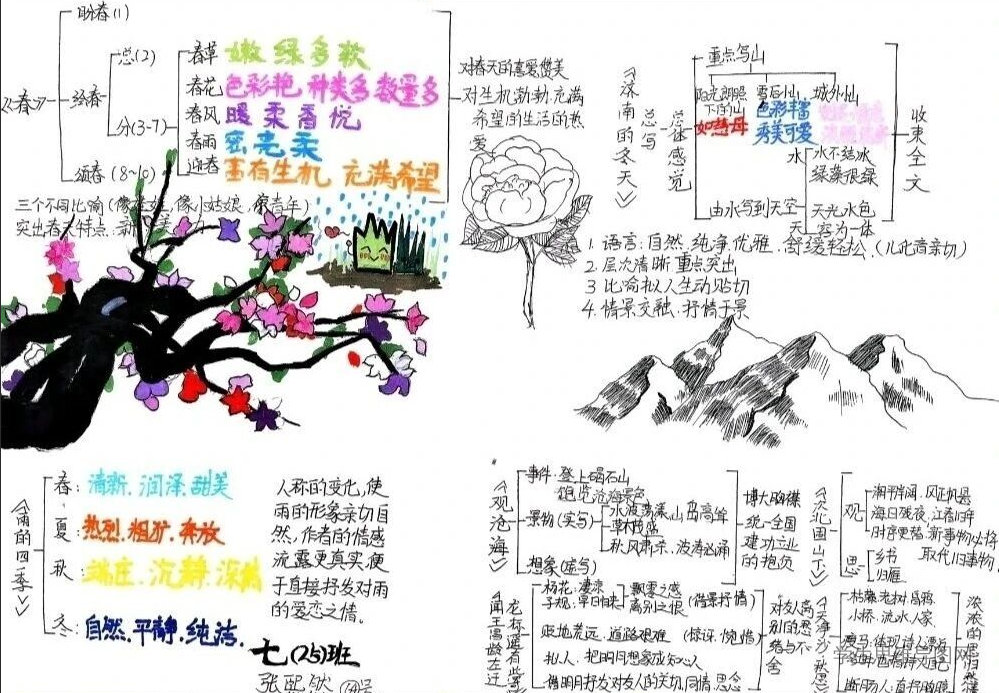 《春》
盼春(1)
绘春
总(2)
分(3-7)
春草 嫩 绿 多 软
春花 色彩艳 种类多 数量多
春风 暖 柔 香 悦
春雨 密 亮 柔
迎春 富有生机 充满希望
颂春(8~10)
三个不同比喻(像娃娃,像小姑娘,像青年)
突出春天特点:新
对春天的喜爱,赞美
对生机勃勃,充满
希望的生活的热
爱
《济南的冬天》
总写
总体感觉
重点写山
阳光朗照
下的山
如慈母
雪后小山
色彩丰富
秀美可爱
城外小山
水
水不结冰
绿藻很绿
由水写到天空
天光水色
天
空为一体
收束全文
1. 语言:自然,纯净,优雅,舒缓轻松(儿化音亲切)
2. 层次清晰 重点突出
3 比喻拟人生动贴切
4. 情景交融:抒情于景
《雨的四季》
春: 清新. 润泽. 甜美
夏: 热烈. 粗犷. 奔放
秋: 端庄. 沉静. 深情
冬: 自然. 平静. 纯洁.
人称的变化,使
雨的形象亲切自
然,作者的情感
流露更真实便
于直接抒发对雨
的爱恋之情.
七(25)班
《观沧海》
事件:登上碣石山
饱览沧海景色
景物(实写)
水波荡漾,山岛高耸
草木茂盛
秋风肃杀,波涛汹涌
想象(虚写)
博大胸襟
统一全国
建功立业
的抱负
《次北固山下》
观
潮平岸阔,风正帆悬
海日残夜,江春旧年
时序更替:新事物必将
取代旧事物
思
乡书
归雁
《闻王昌龄左迁
龙标遥有此寄》
杨花:凄凉
飘零之感
子规:早日归来
离别之恨
(借景抒情)
贬地荒远,道路艰难
(惊讶,惋惜)
拟人,把明月想象成知心人
借明月抒发对友人的关切,同情
对友人离
别的思
绪与不
舍
《天净沙·秋思》
枯藤,老树,昏鸦
小桥,流水,人家
断肠人:直抒胸臆